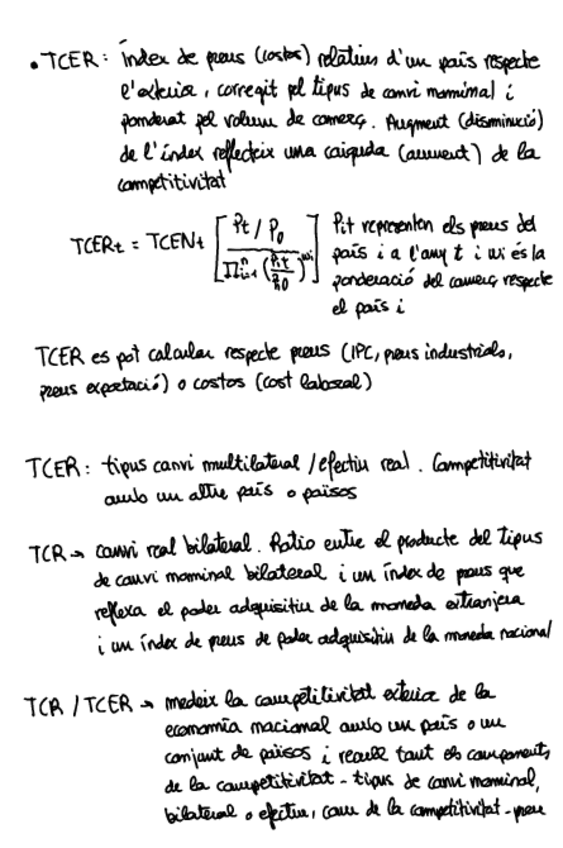 • TCER: índex de preus (costos) relatius d'un país respecte
l'exterior, corregit pel tipus de canvi nominal i
ponderat pel volum de comerç. Augment (disminució)
de l'índex reflecteix una caiguda (augment) de la
competitivitat
TCERt = TCENt [ (Pt / P0) / (Π^n_{i=1} (Pit / Pi0)^wi) ]
Pit representen els preus del
país i a l'any t i wi és la
ponderació del comerç respecte
el país i
TCER es pot calcular respecte preus (IPC, preus industrials,
preus exportació) o costos (cost laboral)
TCER: tipus canvi multilateral / efectiu real. Competitivitat
amb un altre país o països
TCR → canvi real bilateral. Ratio entre el producte del tipus
de canvi nominal bilateral i un índex de preus que
reflexa el poder adquisitiu de la moneda extranjera
i un índex de preus de poder adquisitiu de la moneda nacional
TCR / TCER → medeix la competitivitat exterior de la
economia nacional amb un país o un
conjunt de països i recull tant els components
de la competitivitat - tipus de canvi nominal,
bilateral o efectiu, com de la competitivitat - preu